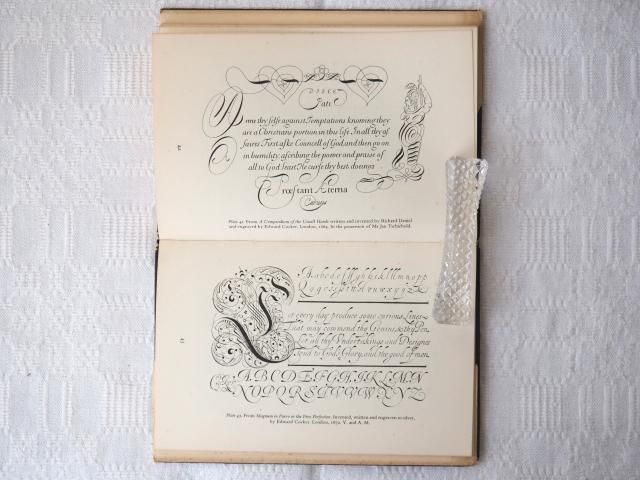 DISCE
Pati
Arme thy selfe against Temptations knowing they
are a Christians portion in this life. In all thy af-
faires First aske Councell of God, and then go on
in humility, ascribing the power and praise of
all to God: least He curse thy best doeings
Præstant Æterna
Caducis
Plate 42. From A Compendium of the Usuall Hands written and invented by Richard Daniel
and engraved by Edward Cocker. London, 1664. In the possession of Mr Jan Tschichold.
42
A a b c d e f f g h h i k k l l m n o p p
Let every day produce some curious Lines
That may commend thy Genius & thy Pen.
For all thy Undertakings and Designes
Tend to God's Glory, and the good of men.
A B C D E F G H I K L M N
N O P Q R S T U V W X Y Z
Plate 43. From Magnum in Parvo or the Pens Perfection. Invented, written and engraven in silver,
by Edward Cocker. London, 1672. V. and A. M.
43